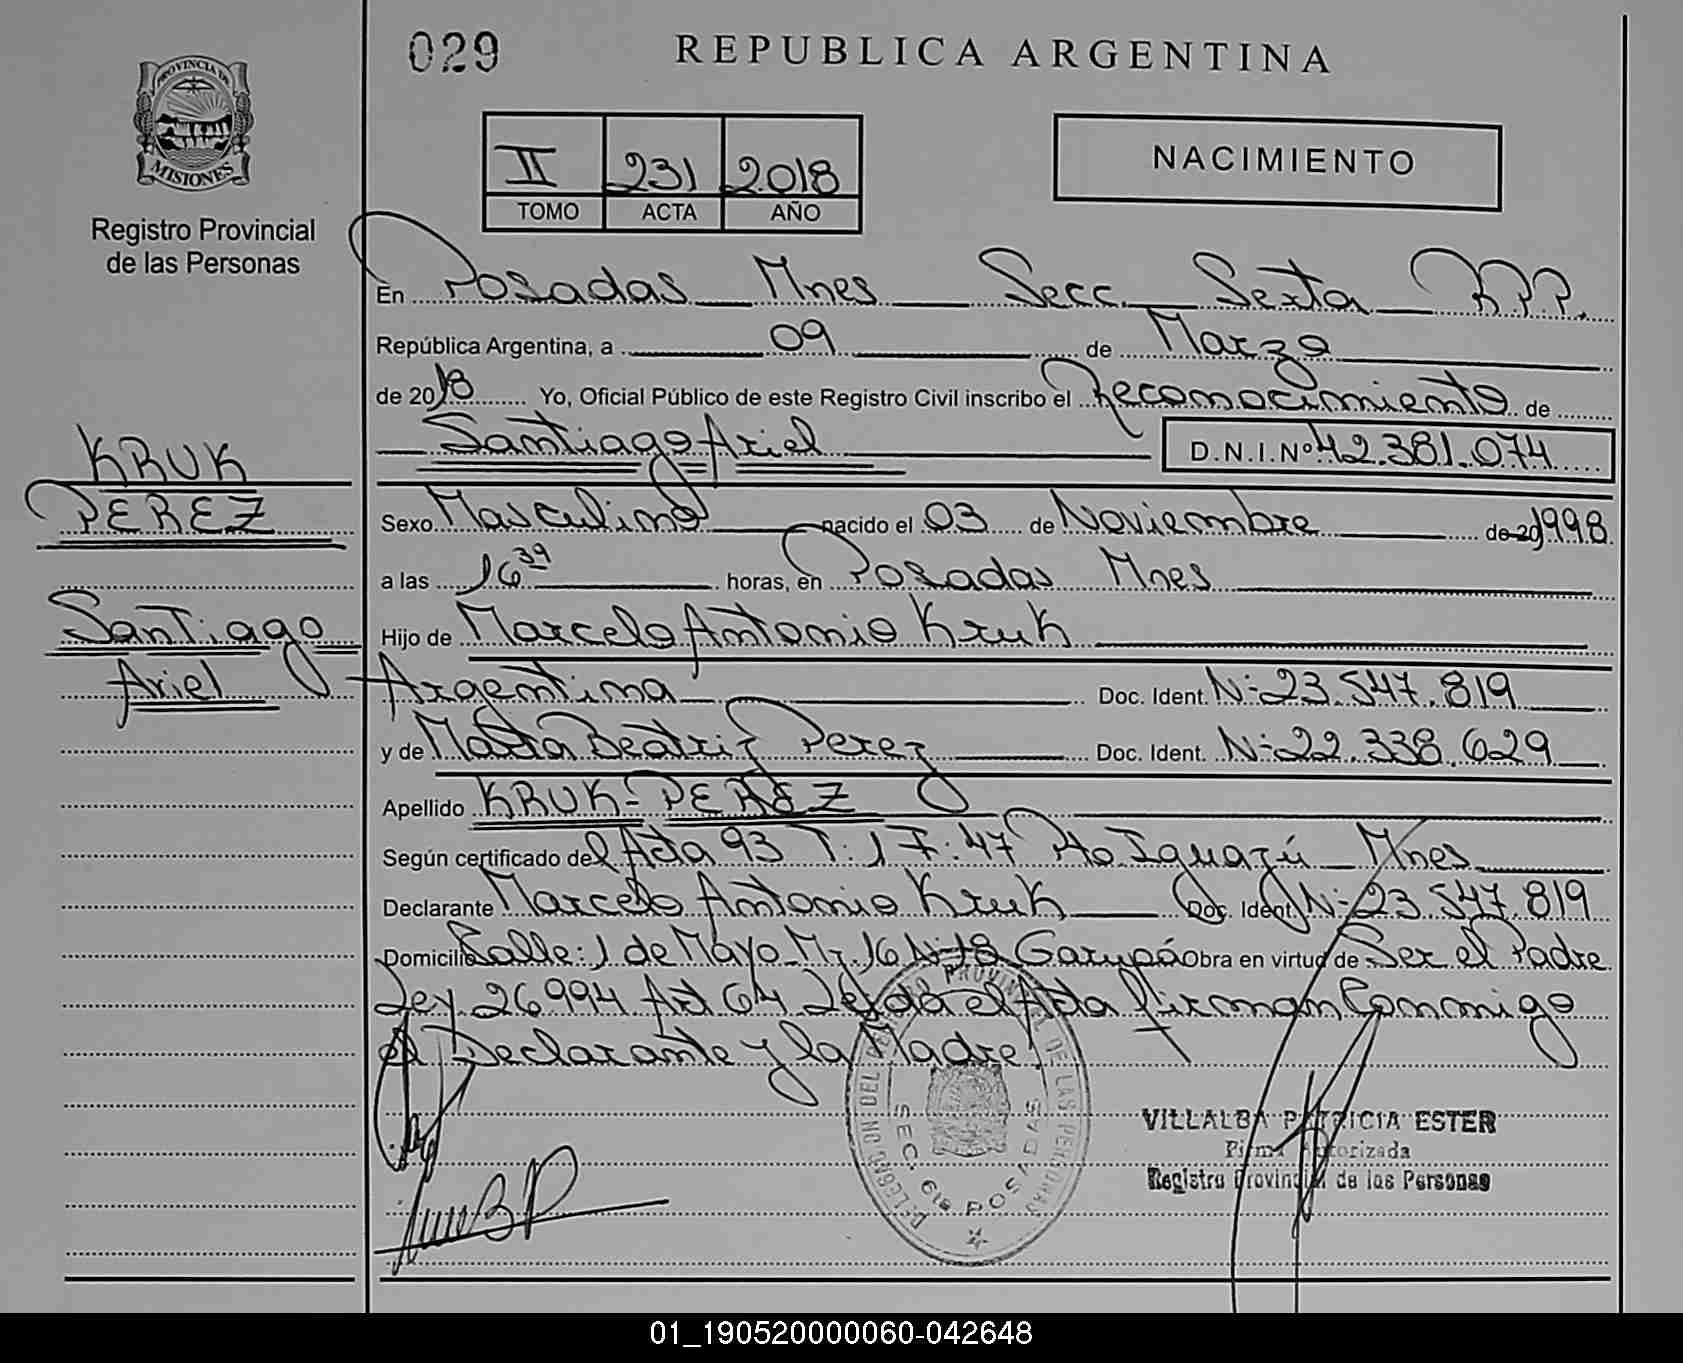 029
REPUBLICA ARGENTINA
PROVINCIA DE
MISIONES
Registro Provincial
de las Personas
II 231 2018
TOMO ACTA AÑO
NACIMIENTO
En Posadas Mnes Secc. Sexta R.P.P.
República Argentina, a 09 de Marzo
de 2018 Yo, Oficial Público de este Registro Civil inscribo el Reconocimiento de
Santiago Ariel D.N.I.Nº 42.381.074
KRUK
PEREZ
Santiago
Ariel
Sexo Masculino nacido el 03 de Noviembre de 20 1998
a las 16 39 horas, en Posadas Mnes
Hijo de Marcelo Antonio Kruk
Argentina Doc. Ident. Nº 23.547.819
y de Marta Beatriz Perez Doc. Ident. Nº 22.338.629
Apellido KRUK-PEREZ
Según certificado del Acta 93 T: 1 F: 47 Pto Iguazú Mnes
Declarante Marcelo Antonio Kruk Doc. Ident. Nº 23.547.819
Domicilio Calle: 1 de Mayo Mz. 16 Nº 18 Garupá Obra en virtud de Ser el Padre
Ley 26994 Art 64 Leída el Acta firman Conmigo
el Declarante y la Madre.
DELEGACION DEL REGISTRO PROVINCIAL DE LAS PERSONAS
SEC. 6ta POSADAS
VILLALBA PATRICIA ESTER
Firma Autorizada
Registro Provincial de las Personas
01_190520000060-042648